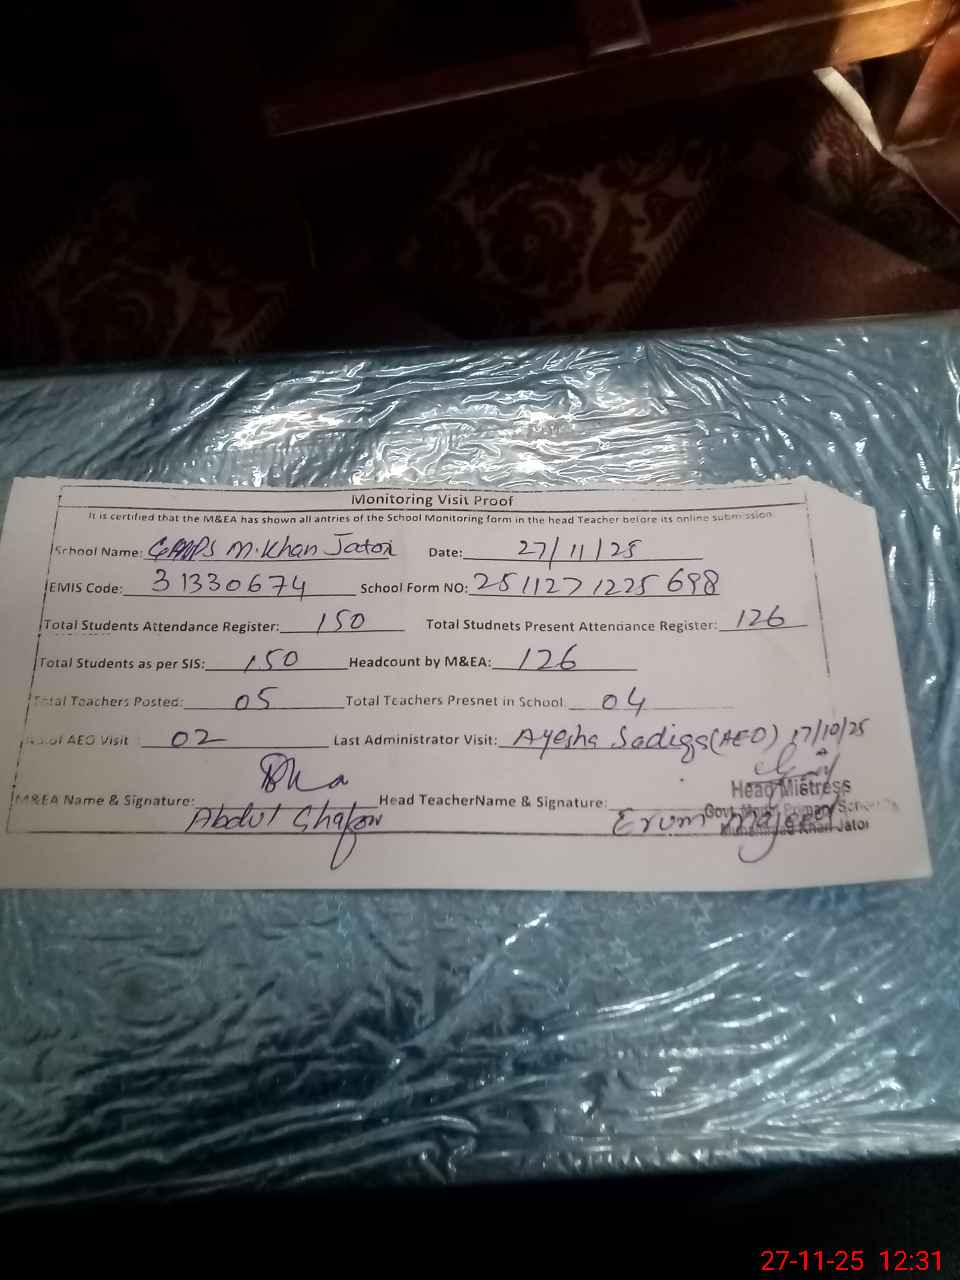 Monitoring Visit Proof
It is certified that the M&EA has shown all antries of the School Monitoring form in the head Teacher before its online submission
School Name: GMPS M.Khan Jatoi Date: 27/11/25
EMIS Code: 31330674 School Form NO: 2511271225698
Total Students Attendance Register: 150 Total Studnets Present Attendance Register: 126
Total Students as per SIS: 150 Headcount by M&EA: 126
Total Teachers Posted: 05 Total Teachers Presnet in School: 04
No.of AEO Visit : 02 Last Administrator Visit: Ayesha Sadiqa(AEO) 17/10/25
Head Mistress
M&EA Name & Signature: Abdul Ghafoor Head TeacherName & Signature: Erum Majeed
Govt. Model Primary School
Muhammad Khan Jatoi
27-11-25 12:31